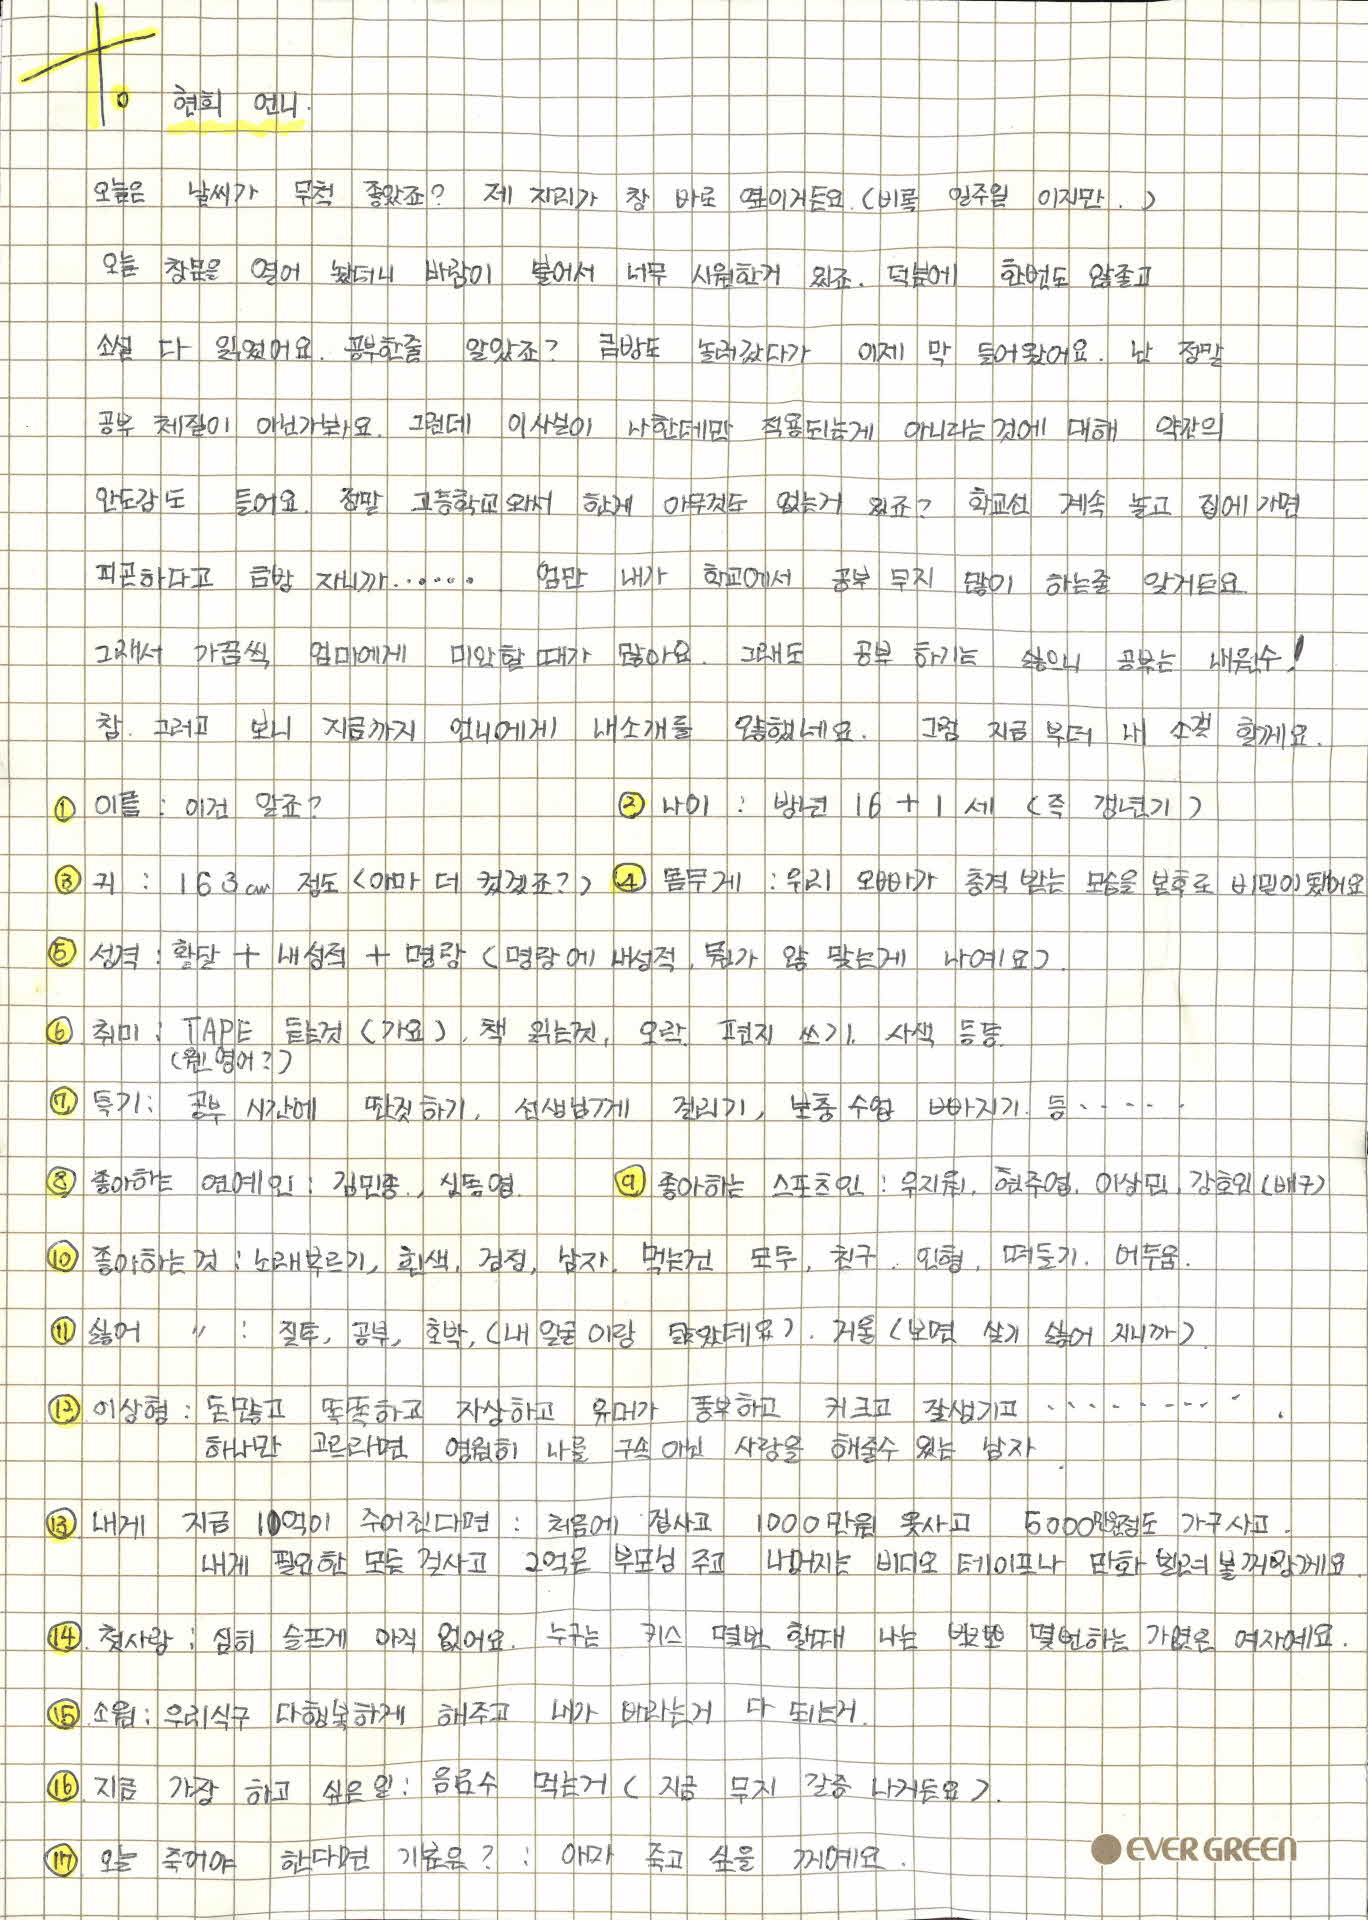 To 현희 언니.
오늘은 날씨가 무척 좋았죠? 제 자리가 창 바로 옆이거든요.(비록 일주일 이지만.)
오늘 창문을 열어 놨더니 바람이 불어서 너무 시원한거 있죠. 덕분에 한번도 않졸고
소설 다 읽었어요. 공부한줄 알았죠? 금방도 놀러갔다가 이제 막 들어왔어요. 난 정말
공부 체질이 아닌가봐요. 그런데 이사실이 나한테만 적용되는게 아니라는것에 대해 약간의
안도감도 들어요. 정말 고등학교와서 한게 아무것도 없는거 있죠? 학교선 계속 놀고 집에가면
피곤하다고 금방 자니까...... 엄만 내가 학교에서 공부 무지 많이 하는줄 알거든요
그래서 가끔씩 엄마에게 미안할때가 많아요. 그래도 공부 하기는 싫으니 공부는 내원수!
참. 그러고 보니 지금까지 언니에게 내소개를 않했네요. 그럼 지금부터 내 소갤 할께요.
① 이름 : 이건 알죠? ② 나이 : 방년 16+1세 (즉 갱년기)
③ 키 : 163cm 정도 (아마 더 컸겠죠?) ④ 몸무게 : 우리 오빠가 충격 받는 모습을 본후로 비밀이 됐어요
⑤ 성격 : 활달 + 내성적 + 명랑 (명랑에 내성적. 뭔가 않 맞는게 나예요).
⑥ 취미 : TAPE 듣는것 (가요), 책 읽는것, 오락. 편지 쓰기. 사색 등등.
(웬 영어?)
⑦ 특기 : 공부 시간에 딴짓하기, 선생님께 걸리기, 보충수업 빠지기. 등......
⑧ 좋아하는 연예인 : 김민종., 신동엽. ⑨ 좋아하는 스포츠인 : 우지원, 현주엽. 이상민, 강호인(배구)
⑩ 좋아하는것 : 노래부르기, 흰색, 검정, 남자. 먹는건 모두, 친구. 인형, 떠들기. 어두움.
⑪ 싫어 〃 : 질투, 공부, 호박, (내 얼굴이랑 닮았데요). 거울 (보면 살기 싫어 지니까).
⑫ 이상형 : 돈많고 똑똑하고 자상하고 유머가 풍부하고 키크고 잘생기고 ..........
하나만 고르라면 영원히 나를 구속 아닌 사랑을 해줄수 있는 남자
⑬ 내게 지금 10억이 주어진다면 : 처음에 집사고 1000만원 옷사고 5000만원정도 가구사고.
내게 필요한 모든 걸사고 2억은 부모님 주고 나머지는 비디오 테이프나 만화 빌려 볼꺼예요
⑭ 첫사랑 : 심히 슬프게 아직 없어요. 누구는 키스 몇번 할때 나는 뽀뽀 몇번하는 가엾은 여자예요.
⑮ 소원 : 우리식구 다행복하게 해주고 내가 바라는거 다 되는거.
⑯ 지금 가장 하고 싶은일 : 음료수 먹는거 (지금 무지 갈증 나거든요).
⑰ 오늘 죽어야 한다면 기분은? : 아마 죽고 싶을 꺼예요.
EVER GREEN